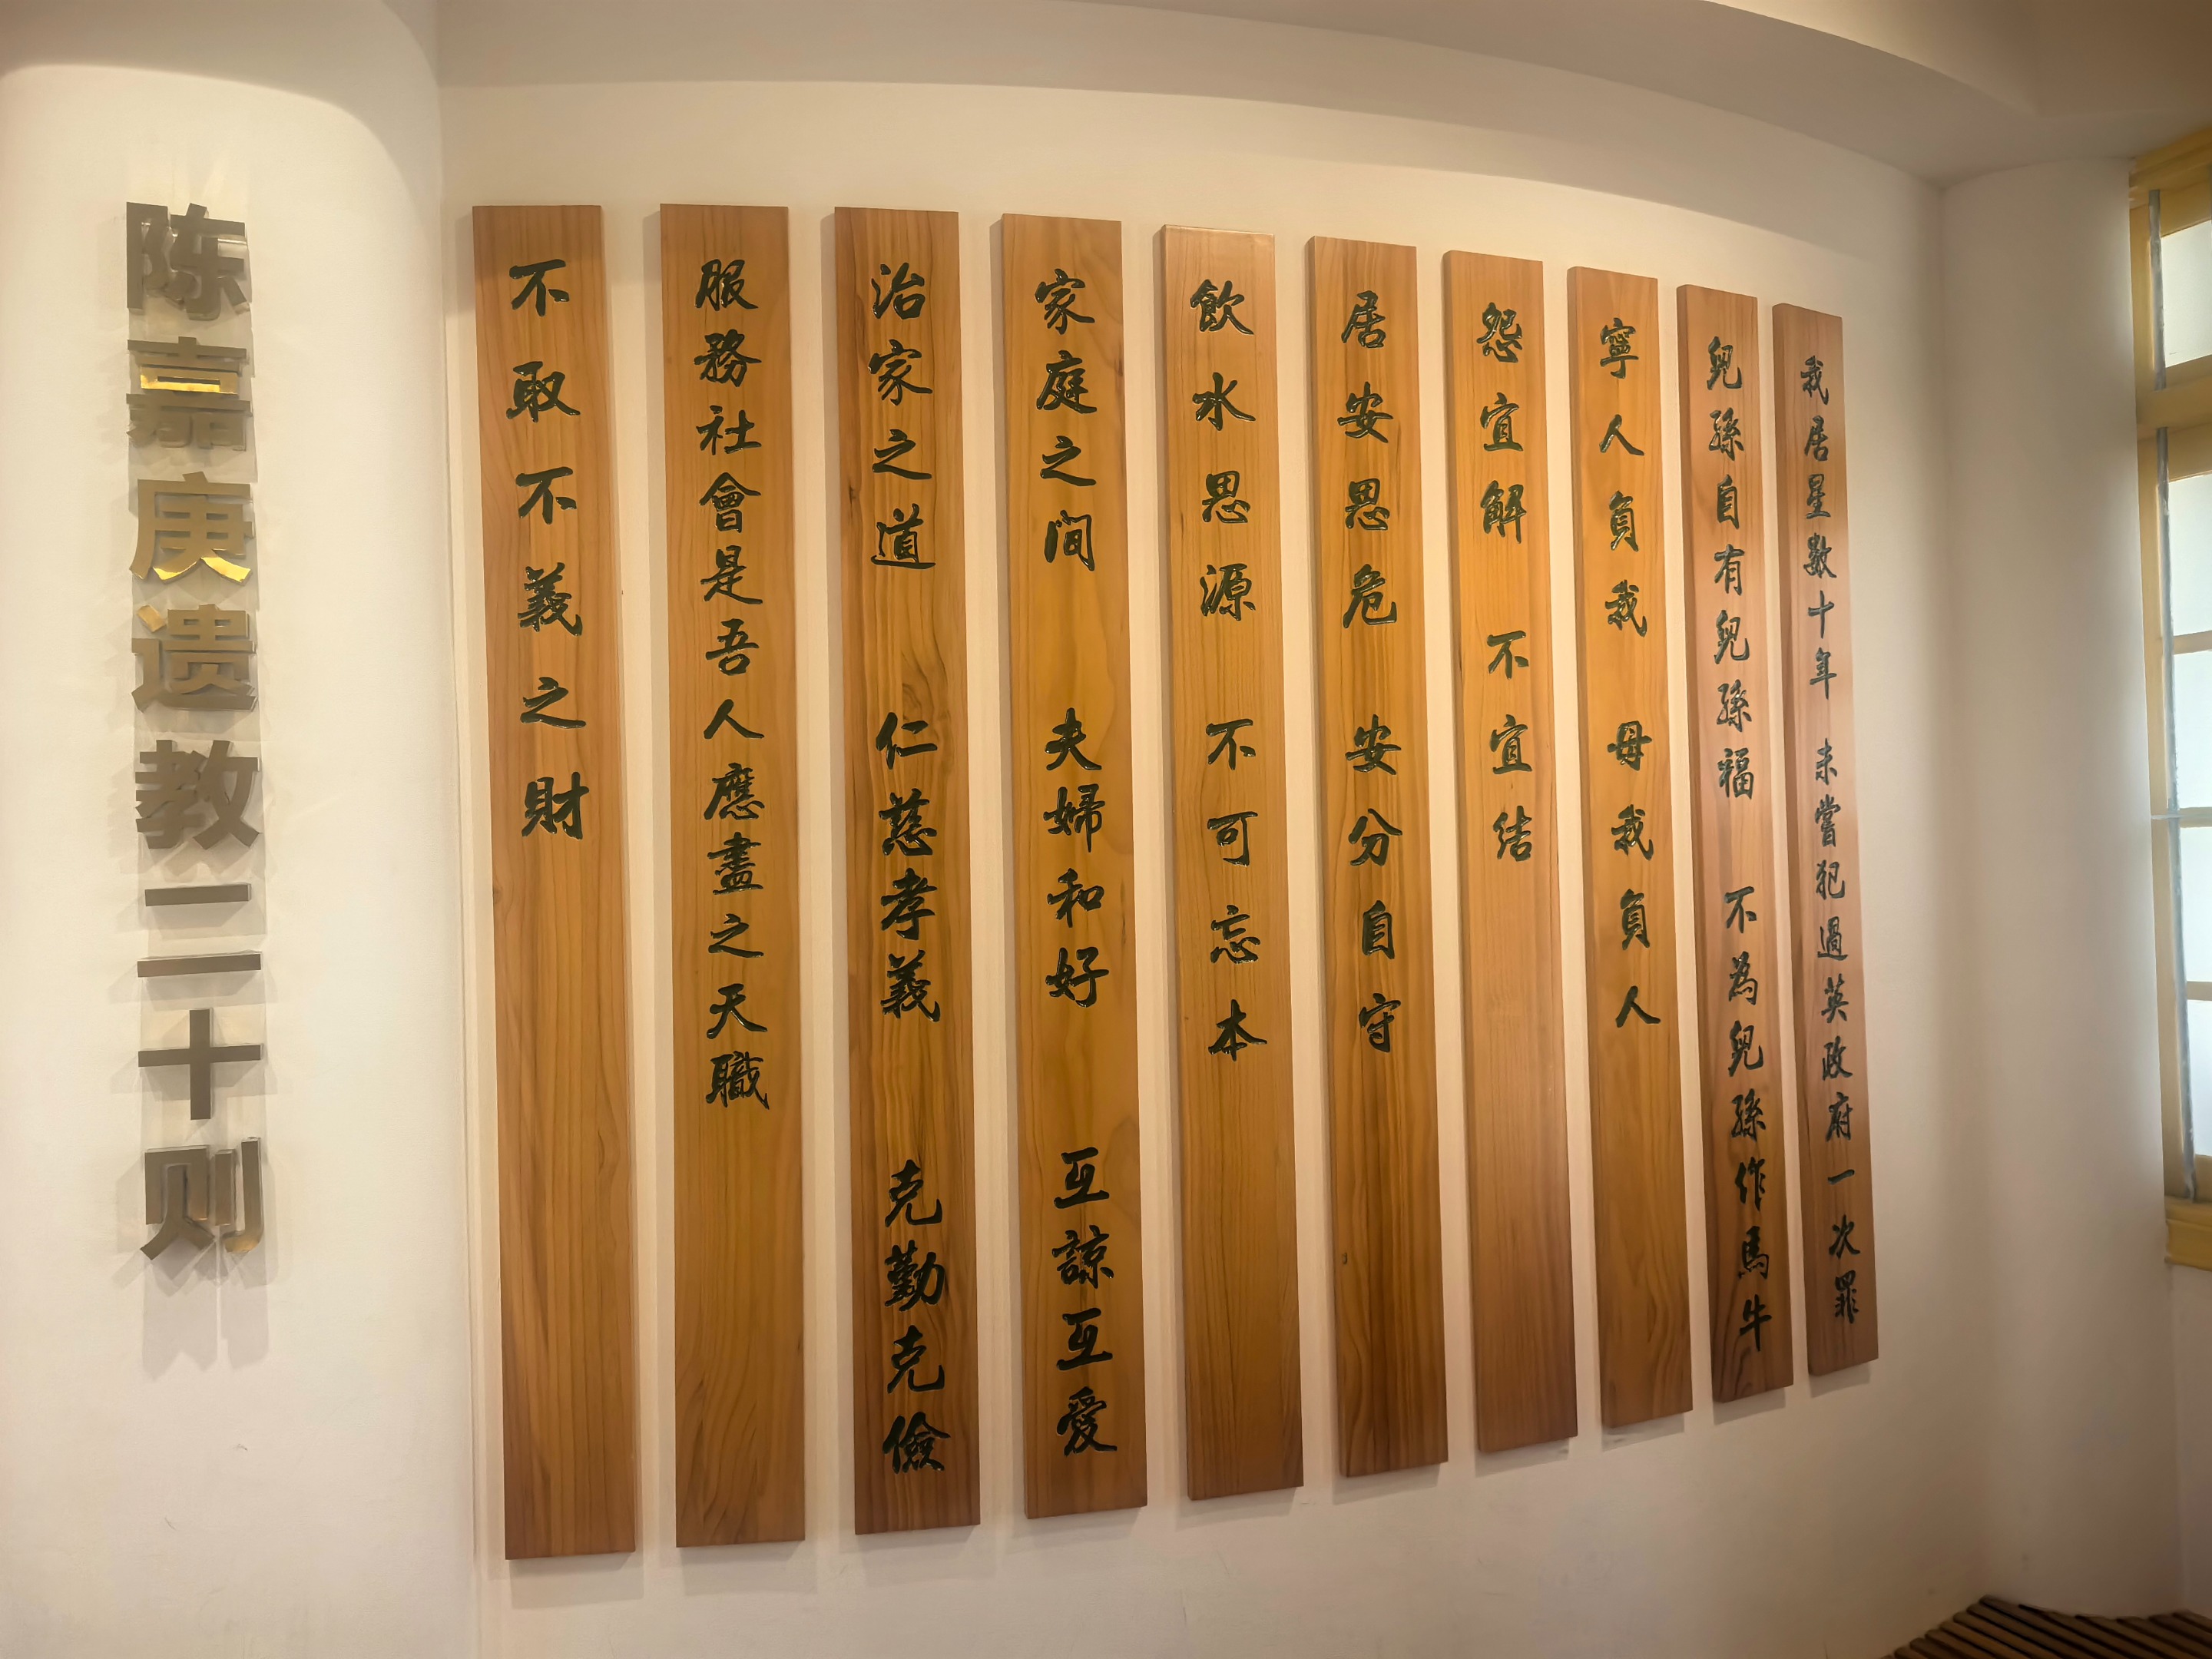 陈嘉庚遗教二十则
不取不義之財
服務社會是吾人應盡之天職
治家之道 仁慈孝義 克勤克儉
家庭之間 夫婦和好 互諒互愛
飲水思源 不可忘本
居安思危 安分自守
怨宜解 不宜结
寧人負我 毋我負人
兒孫自有兒孫福 不為兒孫作馬牛
我居星數十年 未嘗犯過英政府一次罪